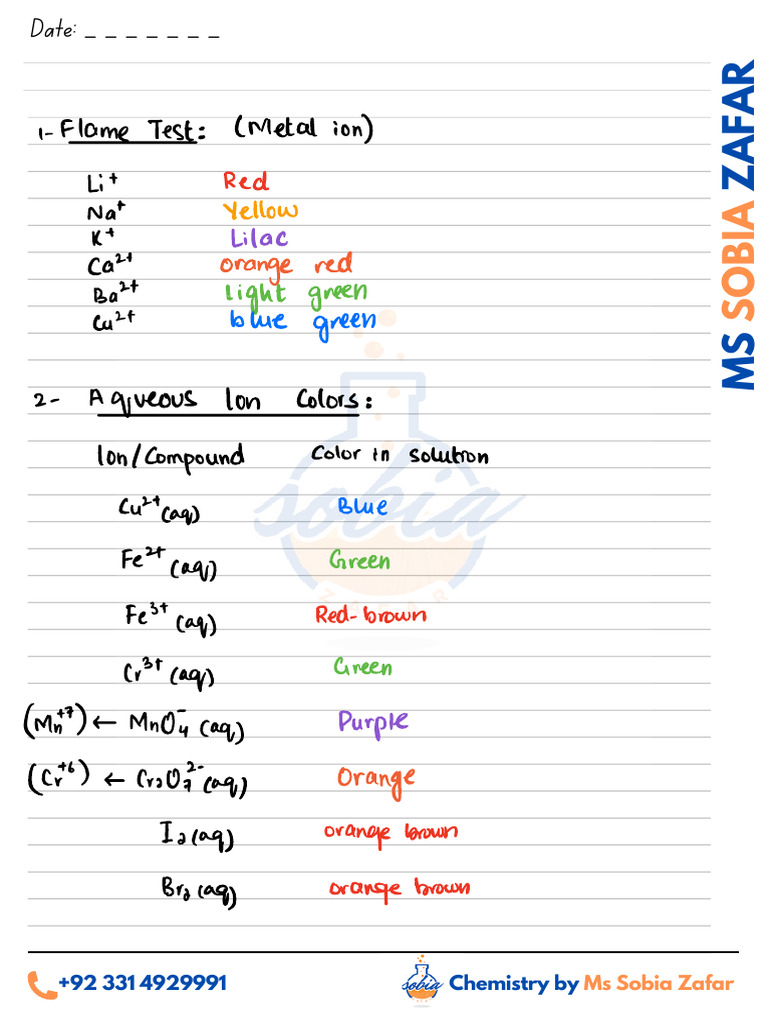 Date: _ _ _ _ _ _ _
MS SOBIA ZAFAR
1- Flame Test: (Metal ion)
Li⁺ Red
Na⁺ Yellow
K⁺ Lilac
Ca²⁺ orange red
Ba²⁺ light green
Cu²⁺ blue green
2- Aqueous Ion Colors:
Ion/Compound Color in solution
Cu²⁺(aq) Blue
Fe²⁺(aq) Green
Fe³⁺(aq) Red-brown
Cr³⁺(aq) Green
(Mn⁺⁷) ← MnO₄⁻(aq) Purple
(Cr⁺⁶) ← Cr₂O₇²⁻(aq) Orange
I₂(aq) orange brown
Br₂(aq) orange brown
sobia
ZAFAR
+92 331 4929991
sobia
Chemistry by Ms Sobia Zafar